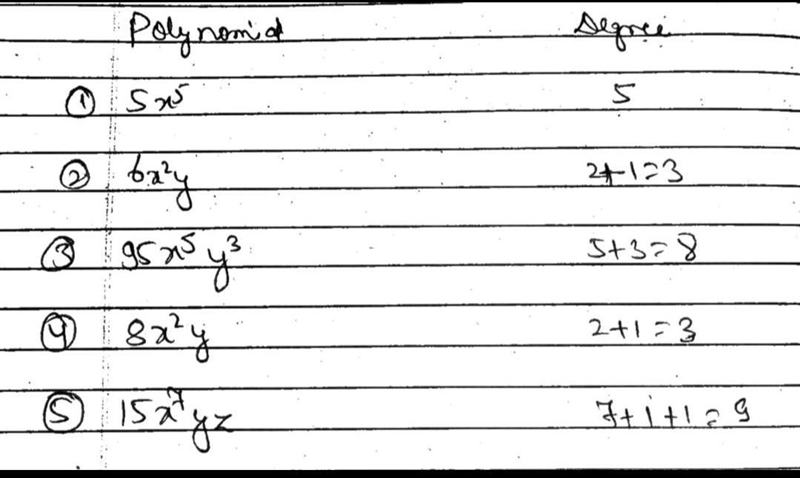 Polynomial Degree
① 5x⁵ 5
② 6x²y 2+1=3
③ 95x⁵y³ 5+3=8
④ 8x²y 2+1=3
⑤ 15x⁷yz 7+1+1=9